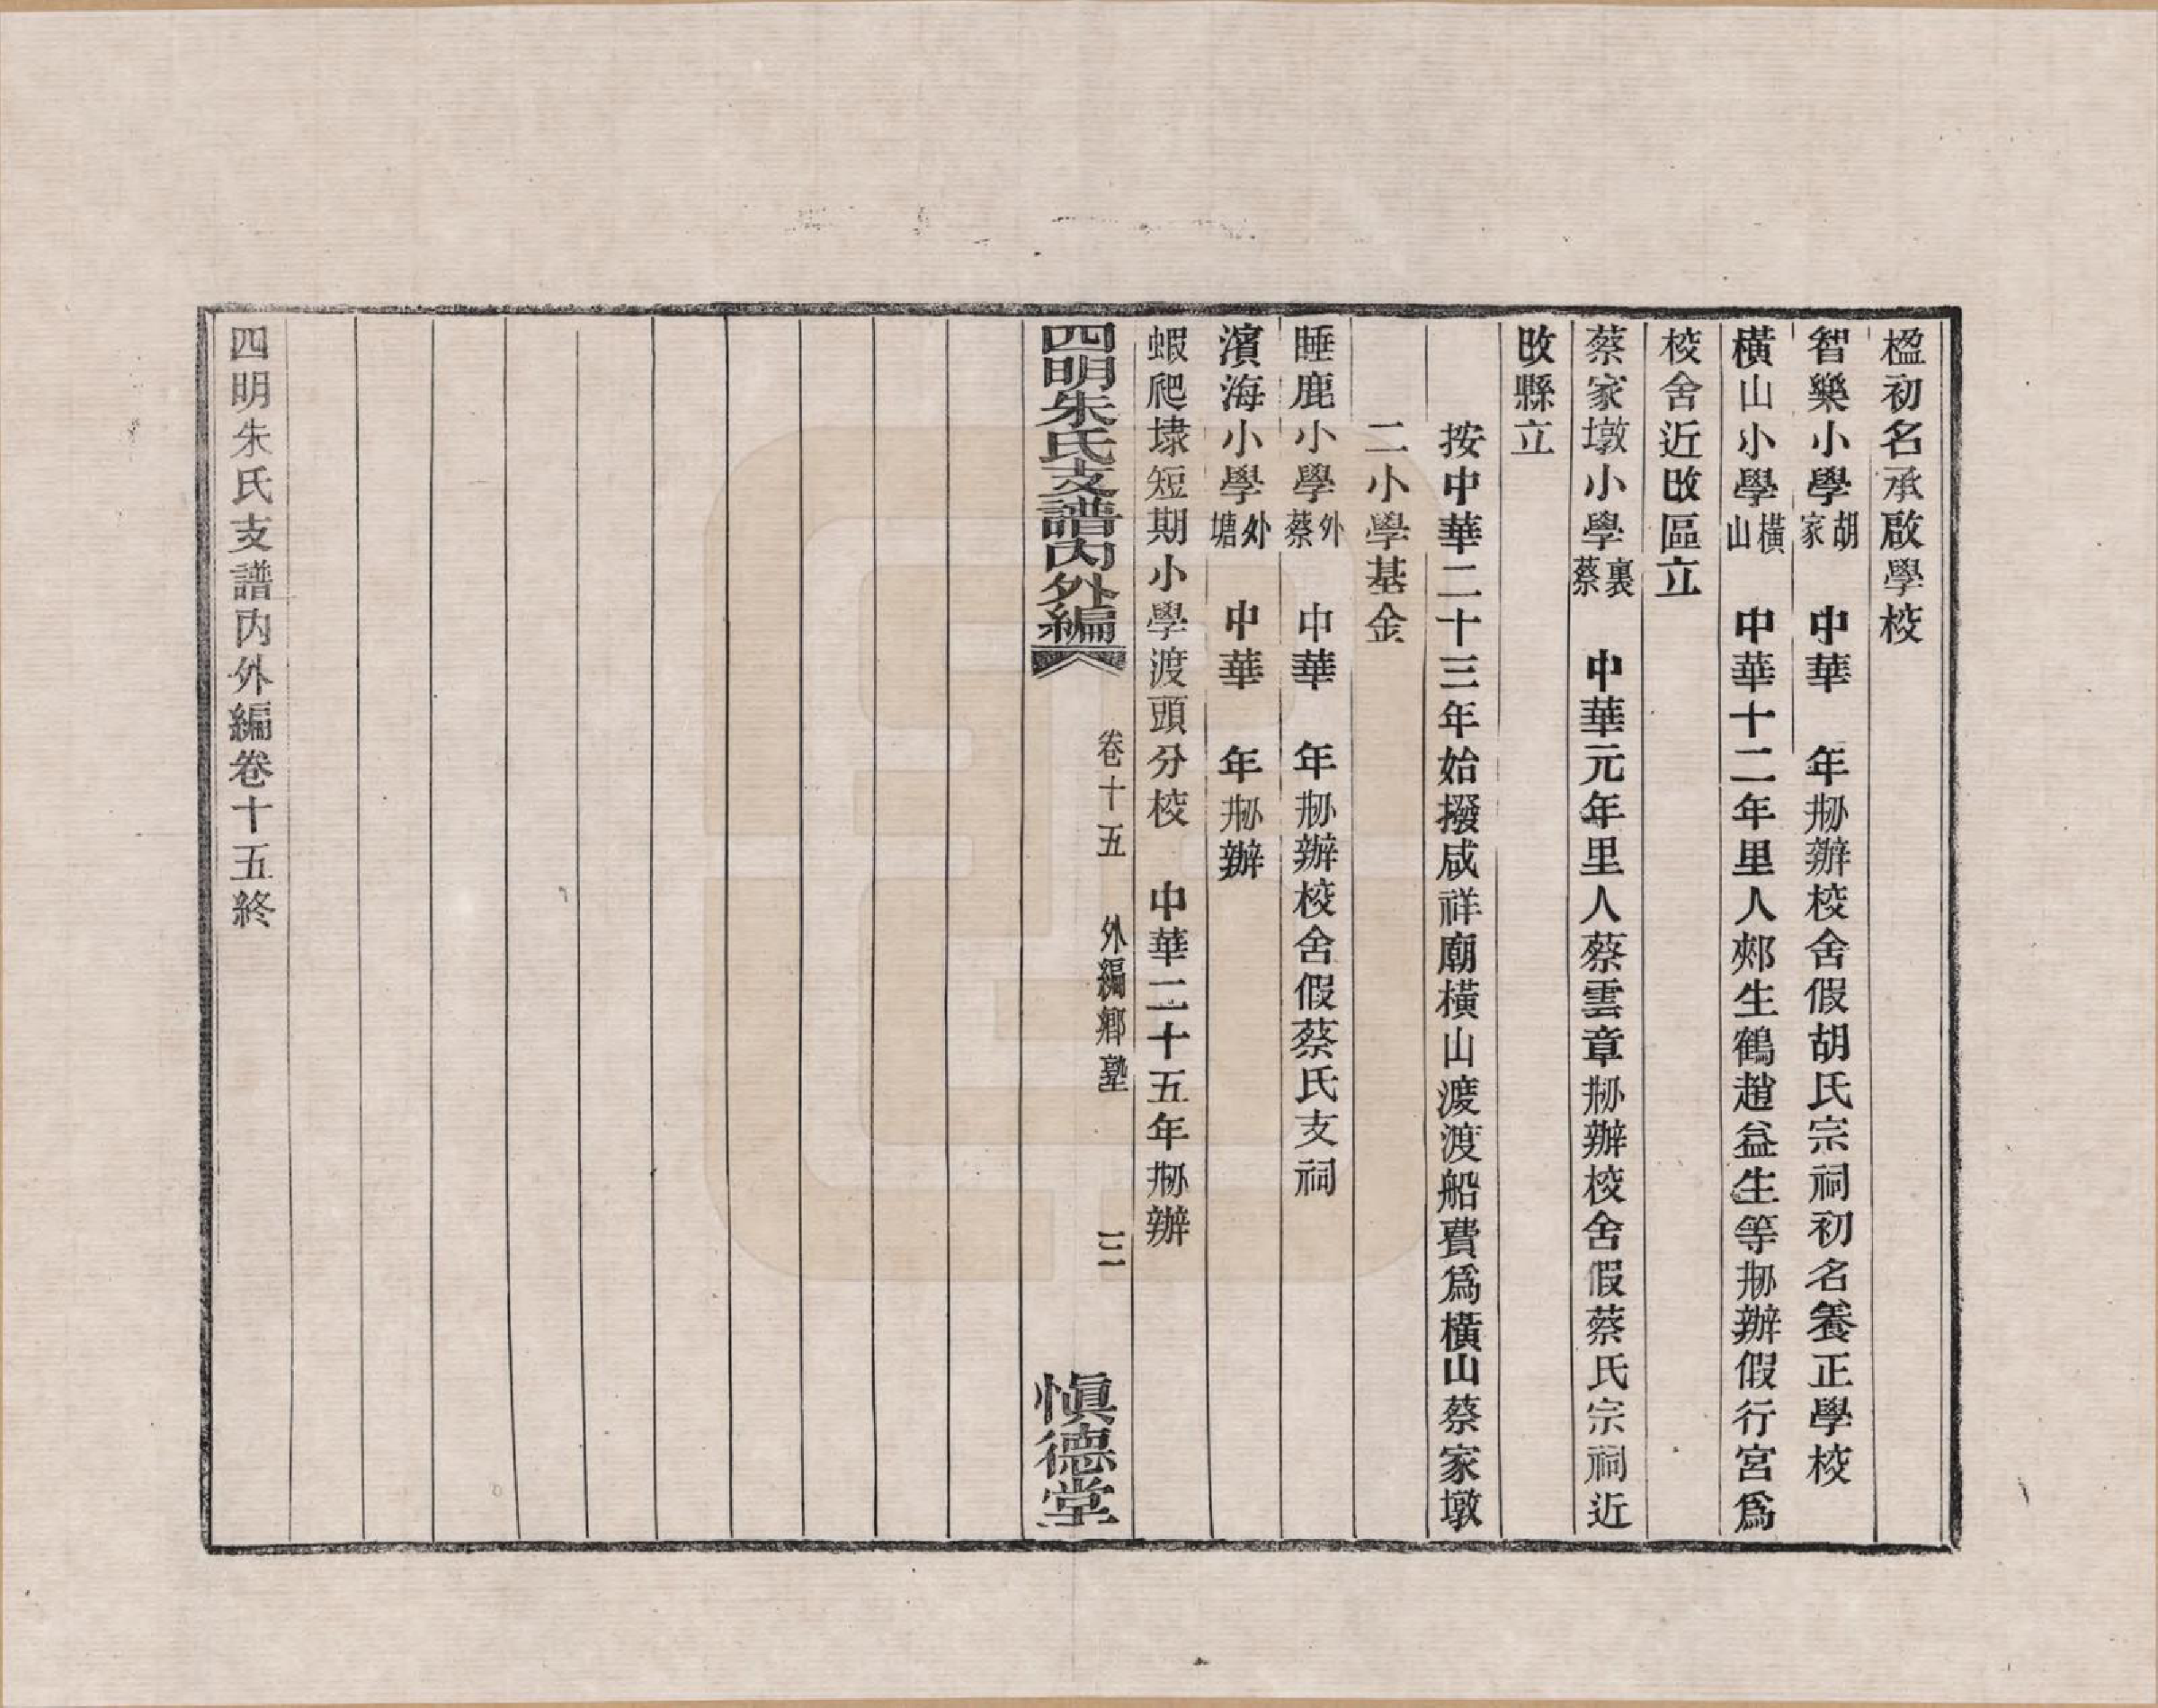 楹初名承啟學校
智樂小學胡家　中華　年刱辦校舍假胡氏宗祠初名養正學校
橫山小學橫山　中華十二年里人郟生鶴趙益生等刱辦假行宮爲
校舍近改區立
蔡家墩小學裏蔡　中華元年里人蔡雲章刱辦校舍假蔡氏宗祠近
改縣立
按中華二十三年始撥咸祥廟橫山渡渡船費爲橫山蔡家墩
二小學基金
睡鹿小學外蔡　中華　年刱辦校舍假蔡氏支祠
濱海小學外塘　中華　年刱辦
蝦爬埭短期小學渡頭分校　中華二十五年刱辦
四明朱氏支譜內外編　卷十五　外編鄉塾　三　愼德堂
四明朱氏支譜內外編卷十五終